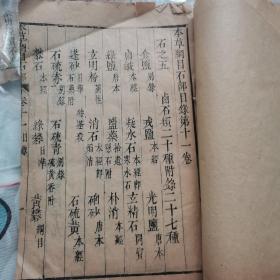 本草綱目石部目錄第十一卷
石之五 鹵石類二十種附錄二十七種
食鹽 別錄 戎鹽 本經 光明鹽 唐本
鹵鹹 本經 凝水石 本經 玄精石 開寶
綠鹽 唐本 鹽藥 朴消 本經
玄明粉 消石 本經 硇砂 唐本
蓬砂 日華 石硫黃 本經
石硫赤 別錄 石硫青 別錄
礬石 本經 綠礬 日華 黃礬 綱目
本草綱目石部 卷十一目錄